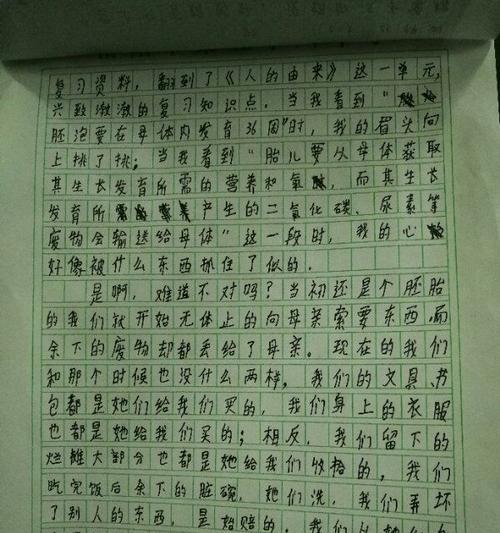 复习资料，翻到了《人的由来》这一单元，
兴致激激的复习知识点。当我看到“
胚泡要在母体内发育36周”时，我的眉头向
上挑了挑；当我看到“胎儿要从母体获取
其生长发育所需的营养和氧，而其生长
发育所产生的二氧化碳、尿素等
废物会输送给母体”这一段时，我的心
好像被什么东西抓住了似的。
是啊，难道不对吗？当初还是个胚胎
的我们就开始无体止的向母亲索要东西，而
余下的废物却都丢给了母亲。现在的我们
和那个时候也没什么两样，我们的文具、书
包都是她们给我们买的，我们身上的衣服
也都是她给我们买的；相反，我们留下的
烂摊大部分也都是她给我们收拾的，我们
吃完饭后余下的脏碗，她们洗，我们弄坏
了别人的东西，是始赔的。我们